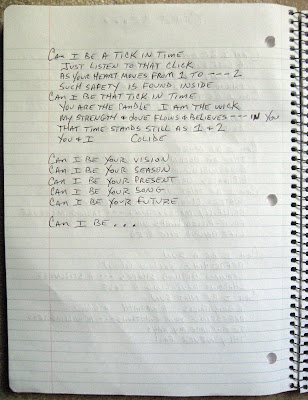 CAN I BE A TICK IN TIME
JUST LISTEN TO THAT CLICK
AS YOUR HEART MOVES FROM 1 TO --- 2
SUCH SAFETY IS FOUND INSIDE
CAN I BE THAT TICK IN TIME
YOU ARE THE CANDLE I AM THE WICK
MY STRENGTH & LOVE FLOWS & BELIEVES --- IN YOU
THAT TIME STANDS STILL AS 1 + 2
YOU & I COLIDE
CAN I BE YOUR VISION
CAN I BE YOUR SEASON
CAN I BE YOUR PRESENT
CAN I BE YOUR SONG
CAN I BE YOUR FUTURE
CAN I BE ...